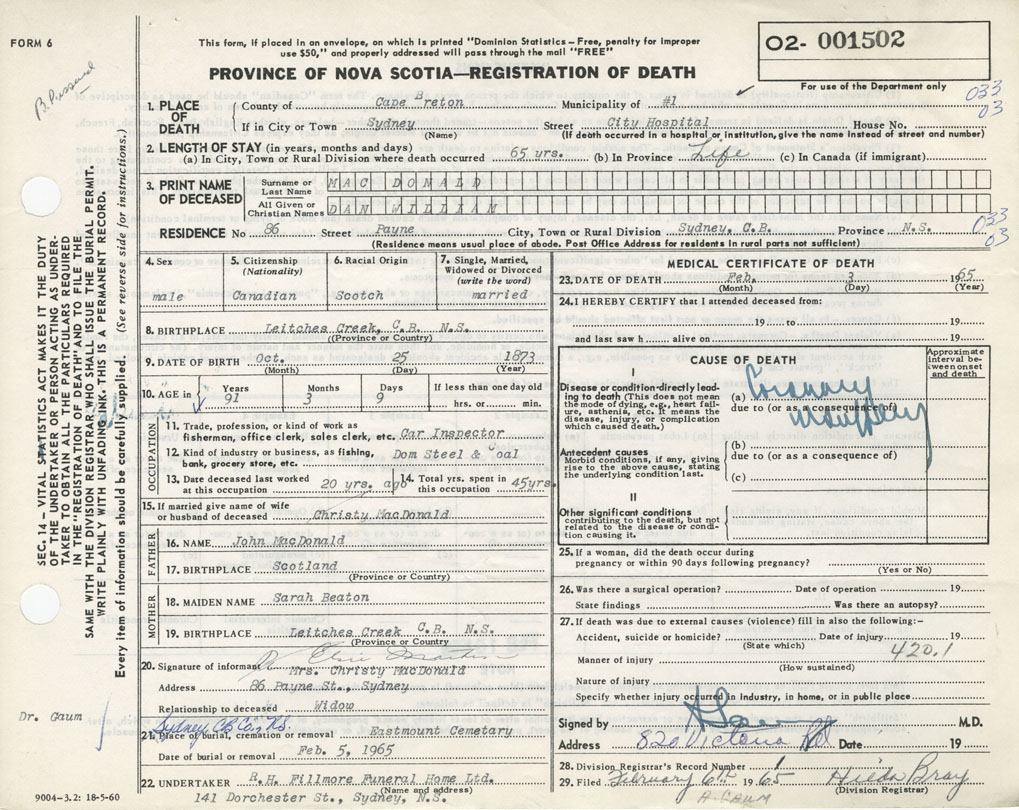 FORM 6
This form, if placed in an envelope, on which is printed "Dominion Statistics—Free, penalty for improper
use $50," and properly addressed will pass through the mail "FREE"
PROVINCE OF NOVA SCOTIA—REGISTRATION OF DEATH
02- 001502
For use of the Department only
033
03
1. PLACE OF DEATH
County of Cape Breton Municipality of #1
If in City or Town Sydney Street City Hospital House No.
(Name) (If death occurred in a hospital or institution, give the name instead of street and number)
2. LENGTH OF STAY (in years, months and days)
(a) In City, Town or Rural Division where death occurred 65 yrs. (b) In Province Life (c) In Canada (if immigrant)
3. PRINT NAME OF DECEASED
Surname or Last Name MAC DONALD
All Given or Christian Names DAN WILLIAM
RESIDENCE No 86 Street Payne City, Town or Rural Division Sydney, C.B. Province N.S.
(Residence means usual place of abode. Post Office Address for residents in rural parts not sufficient)
033
03
4. Sex
male
5. Citizenship
(Nationality)
Canadian
6. Racial Origin
Scotch
7. Single, Married,
Widowed or Divorced
(write the word)
married
8. BIRTHPLACE Leitches Creek, C.B. N.S.
((Province or Country)
9. DATE OF BIRTH Oct. 25 1873
(Month) (Day) (Year)
10. AGE in Years 91 Months 3 Days 9 If less than one day old
hrs. or min.
OCCUPATION
11. Trade, profession, or kind of work as
fisherman, office clerk, sales clerk, etc. Car Inspector
12. Kind of industry or business, as fishing,
bank, grocery store, etc. Dom Steel & Coal
13. Date deceased last worked
at this occupation 20 yrs. ago
14. Total yrs. spent in
this occupation 45yrs.
15. If married give name of wife
or husband of deceased Christy MacDonald
FATHER
16. NAME John MacDonald
17. BIRTHPLACE Scotland
(Province or Country)
MOTHER
18. MAIDEN NAME Sarah Beaton
19. BIRTHPLACE Leitches Creek C.B. N.S.
(Province or Country)
20. Signature of informant Mrs. Christy MacDonald
Address 86 Payne St., Sydney
Relationship to deceased Widow
Sydney CB Co., N.S.
21. Place of burial, cremation or removal Eastmount Cemetary
Date of burial or removal Feb. 5, 1965
22. UNDERTAKER R.H. Fillmore Funeral Home Ltd.
(Name and address)
141 Dorchester St., Sydney, N.S.
MEDICAL CERTIFICATE OF DEATH
23. DATE OF DEATH Feb. 3 1965
(Month) (Day) (Year)
24. I HEREBY CERTIFY that I attended deceased from:
19 to 19
and last saw h alive on 19
CAUSE OF DEATH
Approximate
interval be-
tween onset
and death
I
Disease or condition directly lead-
ing to death (This does not mean
the mode of dying, e.g., heart fail-
ure, asthenia, etc. It means the
disease, injury, or complication
which caused death.)
(a) Coronary
due to (or as a consequence of)
(b)
due to (or as a consequence of)
(c)
Antecedent causes
Morbid conditions, if any, giving
rise to the above cause, stating
the underlying condition last.
II
Other significant conditions
contributing to the death, but not
related to the disease or condi-
tion causing it.
25. If a woman, did the death occur during
pregnancy or within 90 days following pregnancy?
(Yes or No)
26. Was there a surgical operation? Date of operation 19
State findings Was there an autopsy?
27. If death was due to external causes (violence) fill in also the following:-
Accident, suicide or homicide? Date of injury 19
(State which) 420.1
Manner of injury
(How sustained)
Nature of injury
Specify whether injury occurred in industry, in home, or in public place
Signed by M.D.
Address 820 Victoria Rd Date 19
28. Division Registrar's Record Number
29. Filed February 6th 1965 Hilda Bray
(Division Registrar)
A. GAUM
SEC. 14—VITAL STATISTICS ACT MAKES IT THE DUTY
OF THE UNDERTAKER OR PERSON ACTING AS UNDER-
TAKER TO OBTAIN ALL THE PARTICULARS REQUIRED
IN THE "REGISTRATION OF DEATH" AND TO FILE THE
SAME WITH THE DIVISION REGISTRAR WHO SHALL ISSUE THE BURIAL PERMIT.
WRITE PLAINLY WITH UNFADING INK. THIS IS A PERMANENT RECORD.
Every item of information should be carefully supplied. (See reverse side for instructions.)
Dr. Gaum
9004-3.2: 18-5-60